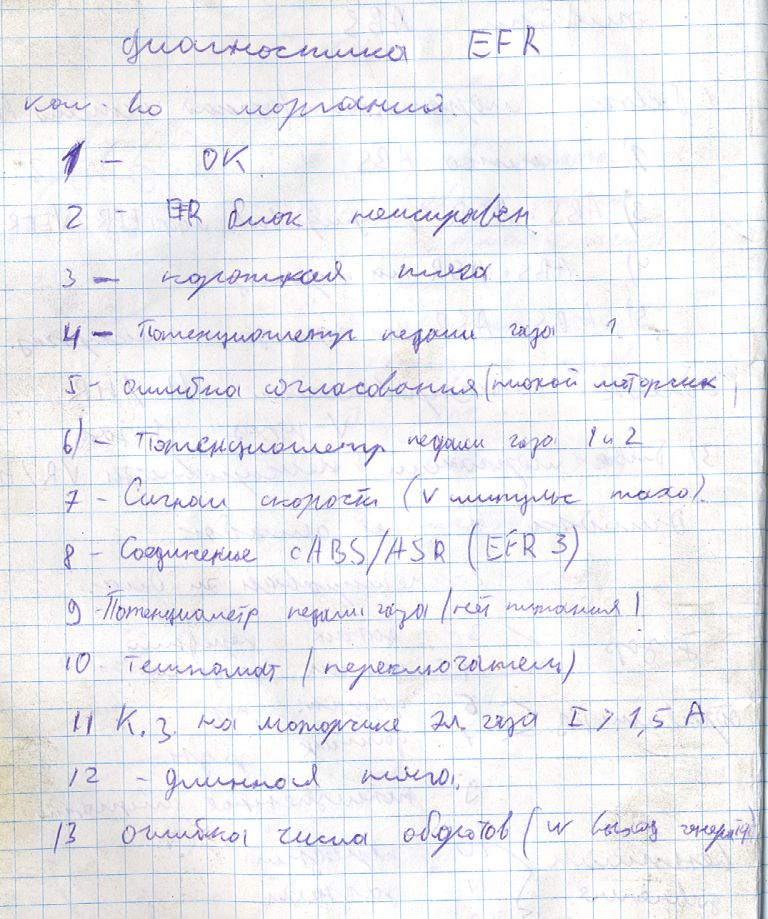 диагностика EFR
кол-во морганий.
1 - OK.
2 - EFR блок неисправен.
3 - короткая тяга
4 - Потенциометр педали газа 1
5 - ошибка согласования (плохой моторчик
6) - Потенциометр педали газа 1 и 2
7 - Сигнал скорости (V импульс тахо).
8 - Соединение с ABS/ASR (EFR 3)
9 - Потенциометр педали газа (нет питания)
10 Темпомат (переключатель)
11 К.з. на моторчике эл. газа I > 1,5 A
12 - длинная тяга.
13 ошибка числа оборотов (W выход генерат)